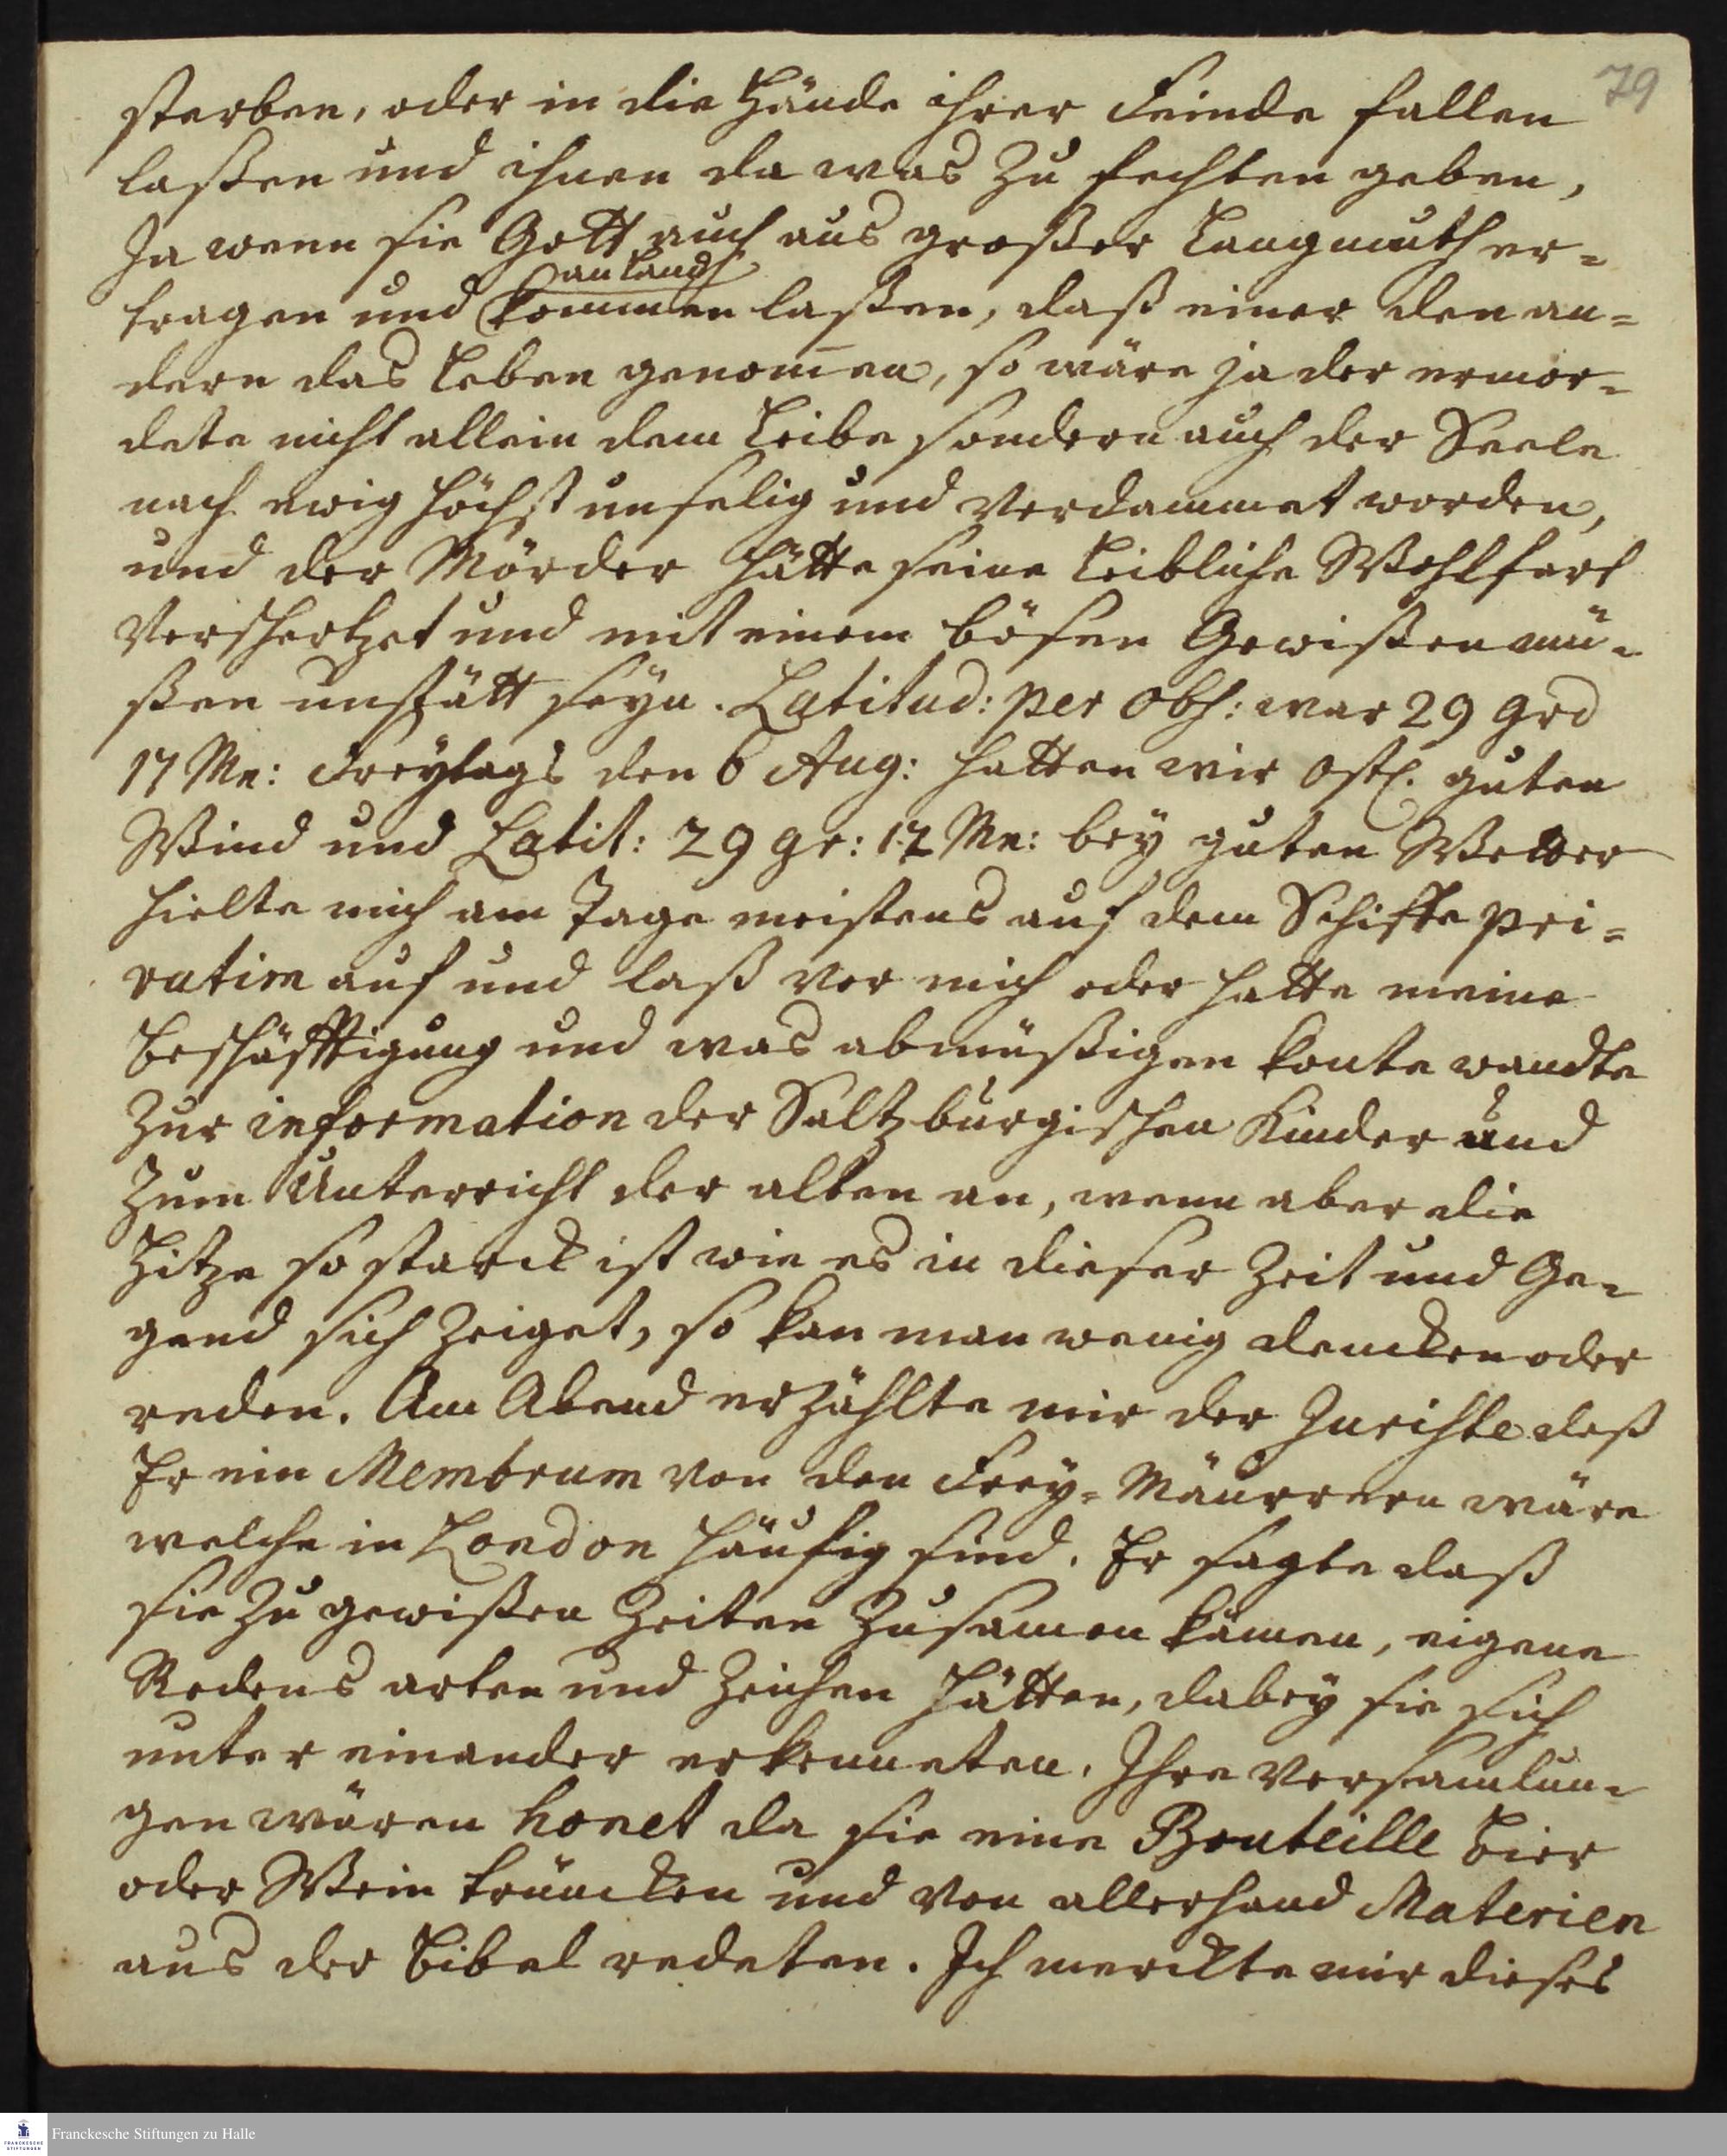 79
sterben, oder in die Hände ihrer Feinde fallen
laßen und ihnen da was zu fechten geben,
Ja wenn sie Gott auch aus großer Langmuth er=
an Land
tragen und kommen laßen, daß einer den an=
dern das Leben genom̄en, so wäre ja der ermor=
dete nicht allein dem Leibe sondern auch der Seele
nach ewig höchst unselig und verdammet worden,
und der Mörder hätte seine Leibliche Wohlfart
verschertzet und mit einem bösen Gewißen mü=
ßen unstätt seyn. Latitud: per obs: war 29 grd
17 Mn: Freytags den 6 Aug: hatten wir Ostl. guten
Wind und Latit: 29 gr: 12 Mn: bey guten Wetter
hielte mich am Tage meistens auf dem Schiffe pri=
vatim auf und laß vor mich oder hatte meine
beschäfftigung und was abmüßigen konte wandte
zur information der Saltzburgischen Kinder und
zum Unterricht der alten an, wenn aber die
Hitze so starck ist wie es in dieser Zeit und Ge=
gend sich zeiget, so kan man wenig dencken oder
reden. Am Abend erzählte mir der Juriste daß
Er ein Membrum von den Frey=Mäurrern wäre
welche in London häufig sind. Er sagte daß
sie zu gewißen Zeiten zusamen kämen, eigene
Redens arten und Zeichen hätten, dabey sie sich
unter einander erkenneten. Ihre Versamlun=
gen wären honet da sie eine Bouteille Bier
oder Wein träncken und von allerhand Materien
aus der Bibel redeten. Ich merckte mir dieses
FRANCKESCHE
STIFTUNGEN
Franckesche Stiftungen zu Halle